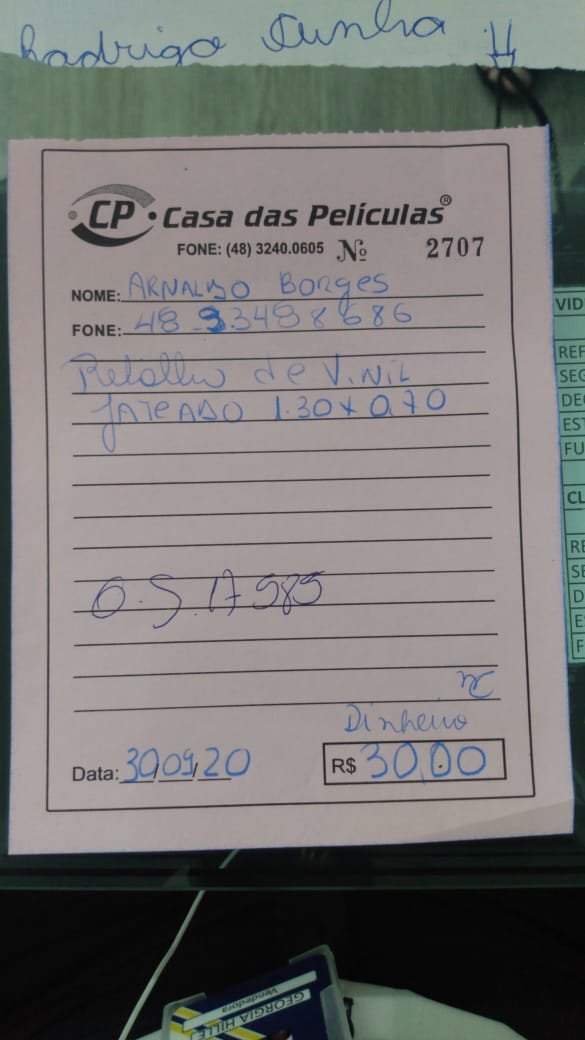 Rodrigo Cunha
CP Casa das Películas®
FONE: (48) 3240.0605 Nº 2707
NOME: ARNALDO Borges
FONE: 48 9.3488686
Retalho de Vinil
JATEADO 1.30 x 0,70
O.S. 17585
Dinheiro
Data: 30/09/20 R$ 30,00
VID
REF
SEG
DE
EST
FU
CL
RE
SE
D
E
F
GEORGIA HILLE
Vendedora